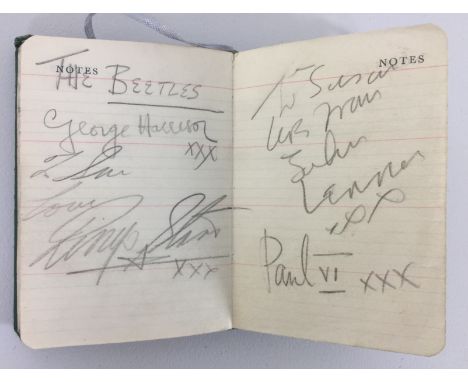 NOTES
THE BEETLES
George Harrison
xxx
To Sue
love
Ringo Starr
xxx
NOTES
To Susan
love from
John
Lennon
xx
Paul VI xxx